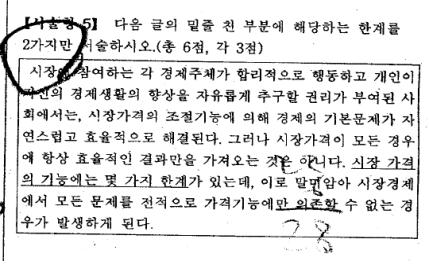 【서술형 5】 다음 글의 밑줄 친 부분에 해당하는 한계를
2가지만 서술하시오.(총 6점, 각 3점)
시장에 참여하는 각 경제주체가 합리적으로 행동하고 개인이
자신의 경제생활의 향상을 자유롭게 추구할 권리가 부여된 사
회에서는, 시장가격의 조절기능에 의해 경제의 기본문제가 자
연스럽고 효율적으로 해결된다. 그러나 시장가격이 모든 경우
에 항상 효율적인 결과만을 가져오는 것은 아니다. 시장 가격
의 기능에는 몇 가지 한계가 있는데, 이로 말미암아 시장경제
에서 모든 문제를 전적으로 가격기능에만 의존할 수 없는 경
우가 발생하게 된다.
28